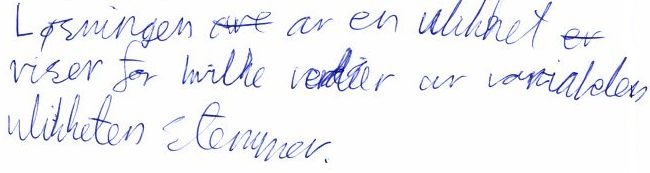 Løsningen av en ulikhet
viser for hvilke verdier av variabelen
ulikheten stemmer.